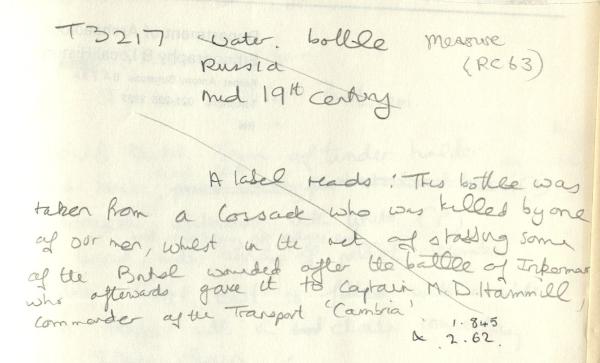 T3217 water. bottle measure
Russia (RC63)
mid 19th century
A label reads: This bottle was
taken from a Cossack who was killed by one
of our men, whilst in the act of stabbing some
of the British wounded after the battle of Inkerman
who afterwards gave it to Captain M.D. Hammill,
commander of the Transport 'Cambria'
1.845
& 2.62.